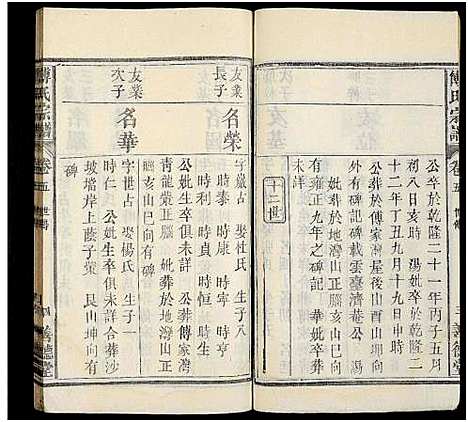 傅氏宗譜
卷五
世傳
三
善德堂
公卒於乾隆二十一年丙子五月
初八日亥時　湯妣卒於乾隆二
十二年丁丑九月十九日申時
公葬於傅家灣屋後山酉山坤向
外有碑記碑載雲臺濟菴公　湯
妣葬於地灣山正腦亥山巳向
有雍正九年之碑記　華妣卒葬
未詳
十二世
友業
長子
名榮
字嚴占　娶杜氏　生子八
時泰　時康　時寧　時亨
時利　時貞　時恒　時生
公妣生卒俱未詳　公葬傅家灣
青龍嘴正腦　妣葬於地灣山正
腦亥山巳向有碑
友業
次子
名華
字世占　娶楊氏　生子一
時仁　公妣生卒俱未詳合葬沙
坡壋岸上蔭子嘴　艮山坤向有
碑
傅氏宗譜
卷五
世傳
善德堂